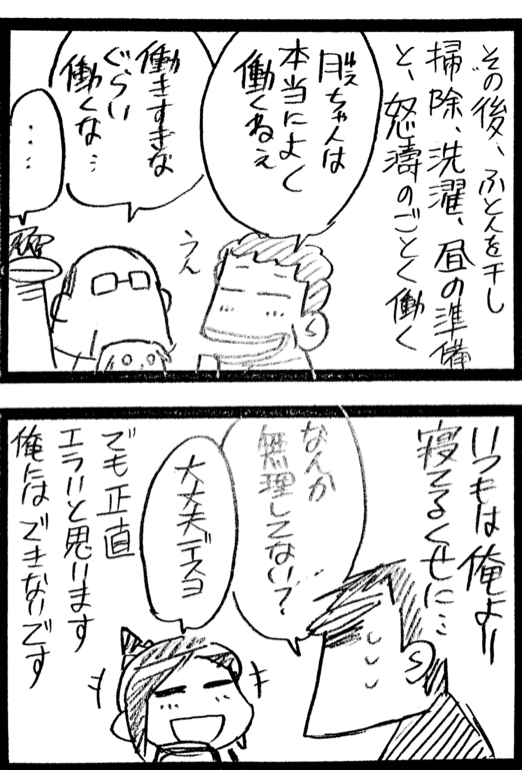 その後、ふとんを干し
掃除、洗濯、昼の準備
と、怒濤のごとく働く
ちゃんは
本当によく
働くねぇ
働きすぎな
ぐらい
働くな…
…
うん
いつもは俺より
寝てるくせに…
なんか
無理してない?
大丈夫デスヨ
でも正直
エライと思います
俺にはできないです